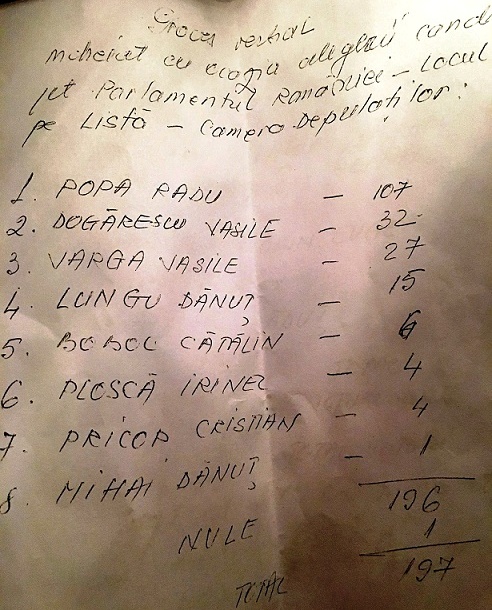 Proces verbal
incheiat cu ocazia alegerii cand
pt Parlamentul României - Locul
pe Listă - Camera Deputaților:
1. POPA RADU - 107
2. DOGĂRESCU VASILE - 32
3. VARGA VASILE - 27
4. LUNGU DĂNUȚ - 15
5. BOBOC CĂTĂLIN - 6
6. PLOSCĂ IRINEL - 4
7. PRICOP CRISTIAN - 4
8. MIHAI DĂNUȚ - 1
196
NULE 1
TOTAL 197